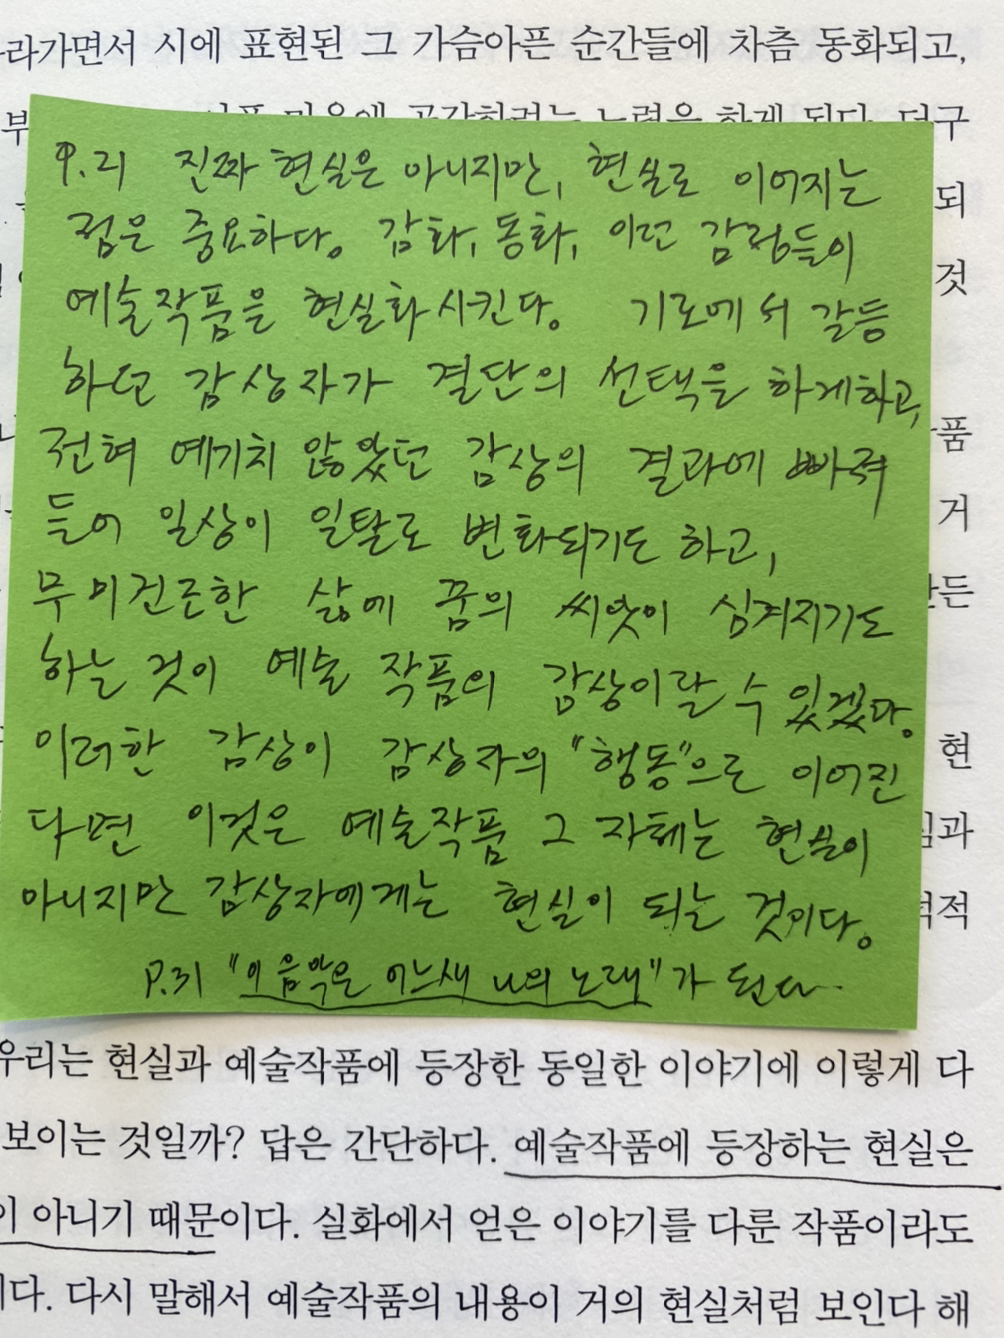 라가면서 시에 표현된 그 가슴아픈 순간들에 차츰 동화되고,
부 마음에 공감하려는 노력을 하게 된다. 더구
되
것
품
거
든
현
과
적
P.21 진짜 현실은 아니지만, 현실로 이어지는
점은 중요하다. 감화, 동화, 이런 감정들이
예술작품을 현실화시킨다. 기로에서 갈등
하던 감상자가 결단의 선택을 하게하고,
전혀 예기치 않았던 감상의 결과에 빠져
들어 일상이 일탈로 변화되기도 하고,
무미건조한 삶에 꿈의 씨앗이 심겨지기도
하는 것이 예술 작품의 감상이랄 수 있겠다.
이러한 감상이 감상자의 "행동"으로 이어진
다면 이것은 예술작품 그 자체는 현실이
아니지만 감상자에게는 현실이 되는 것이다.
P.31 "이 음악은 어느새 나의 노래"가 된다.
우리는 현실과 예술작품에 등장한 동일한 이야기에 이렇게 다
보이는 것일까? 답은 간단하다. 예술작품에 등장하는 현실은
이 아니기 때문이다. 실화에서 얻은 이야기를 다룬 작품이라도
다. 다시 말해서 예술작품의 내용이 거의 현실처럼 보인다 해